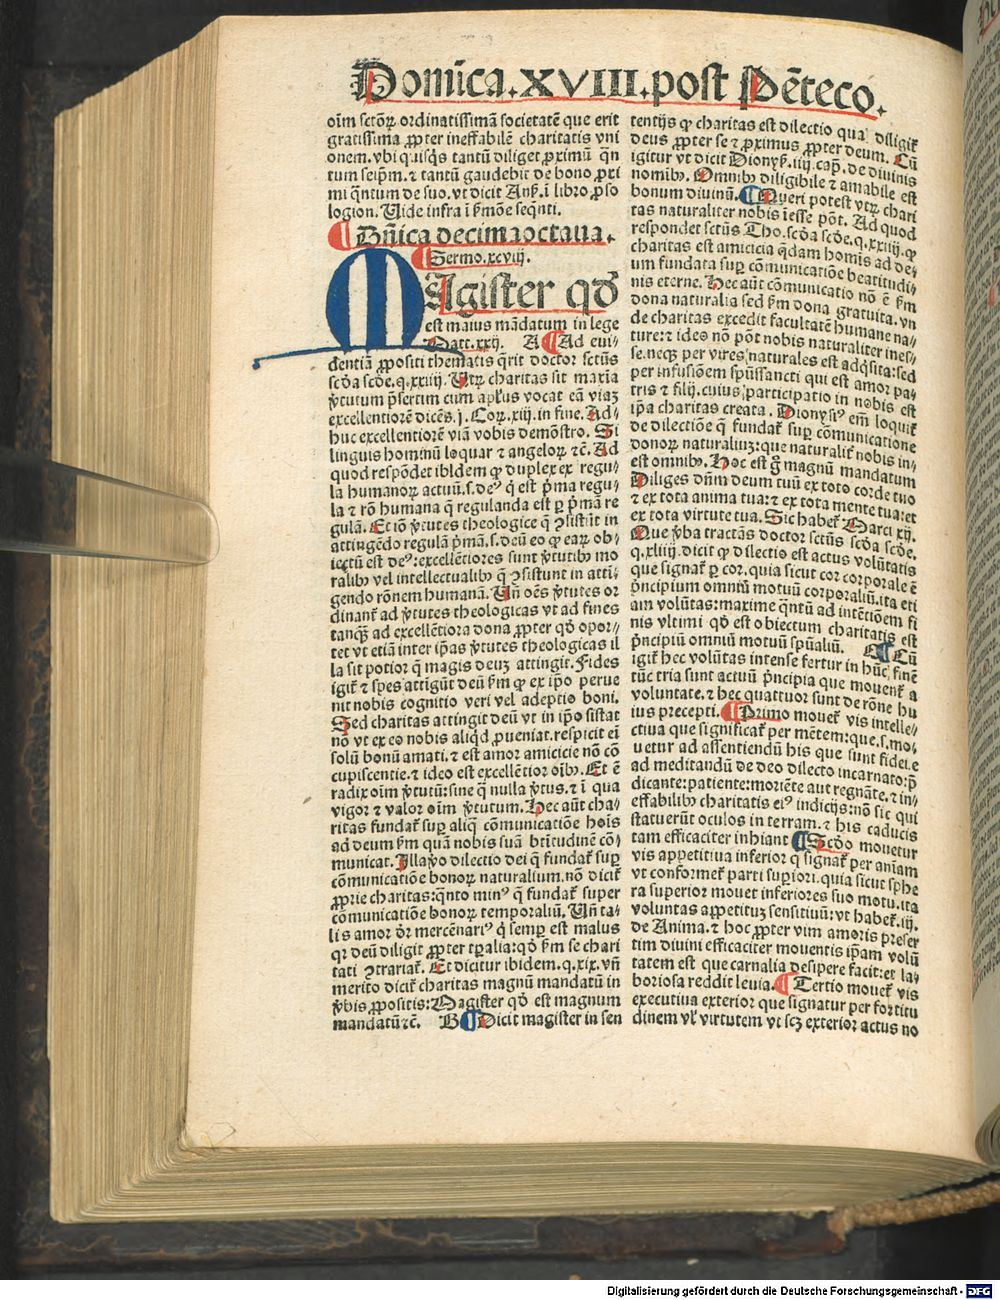 Domīca.XVIII.post Pēteco.
oīm sctōꝝ ordinatissimā societatē que erit
gratissima ꝓpter ineffabilē charitatis vni
onem. vbi quisqꝫ tantū diliget ꝓximū qn̄
tum seip̄m. ⁊ tantū gaudebit de bono ꝓxi
mi qn̄tum de suo. vt dicit Anß. ī libro ꝓso
logion. Uide infra ī ẜmōe seqn̄ti.
Dn̄ica decimaoctaua.
Sermo.xcviij.
MAgister qđ
est maius mādatum in lege
Matt.xxij. A Ad eui⸗
dentiā ꝓpositi thematis q̄rit doctor sctūs
scđa scđe.q.xxiij. Utꝝ charitas sit maxīa
v̄tutum p̄sertim cum apl̄us vocat eā viaꝫ
excellentiorē dicēs.j. Coꝝ.xiij. in fine. Ad⸗
huc excellentiorē viā vobis demōstro. Si
linguis hominū loquar ⁊ angeloꝝ ⁊c̄. Ad
quod respōdet ibidem ꝙ duplex ex regu⸗
la humanoꝝ actuū.s.deꝰ q̄ est p̄ma regu⸗
la ⁊ rō humana q̄ regulanda est ꝑ p̄mā re
gulā. Et iō v̄tutes theologice q̄ ꝯsistūt in
attingēdo regulā p̄mā.s.deū eo ꝙ eaꝝ ob⸗
iectū est deꝰ: excellētiores sunt v̄tutibꝫ mo
ralibꝫ vel intellectualibꝫ q̄ ꝯsistunt in atti⸗
gendo rōnem humanā. Un̄ oēs v̄tutes or
dinanť ad v̄tutes theologicas vt ad fines
tanqꝫ ad excellētiora dona ꝓpter qđ opor⸗
tet vt etiā inter ip̄as v̄tutes theologicas il
la sit potior q̄ magis deuꝫ attingit. Fides
igiť ⁊ spes attigūt deū ẜm ꝙ ex ip̄o perue
nit nobis cognitio veri vel adeptio boni.
Sed charitas attingit deū vt in ip̄o sistat
nō vt ex eo nobis aliqđ ꝓueniat. respicit eī
solū bonū amati. ⁊ est amor amicicie nō cō
cupiscentie. ⁊ ideo est excellētior oībꝫ. Et ē
radix oīm v̄tutū: sine q̄ nulla v̄tus. ⁊ ī qua
vigor ⁊ valor oīm v̄tutum. Hec aūt cha⸗
ritas fundať suꝑ aliq̄ cōmunicatiōe hoīs
ad deum ẜm quā nobis suā btītudinē cō⸗
municat. Illa v̄o dilectio dei q̄ fundať suꝑ
cōmunicatiōe bonoꝝ naturalium. nō diciť
ꝓprie charitas: qn̄to minꝰ q̄ fundať super
cōmunicatiōe bonoꝝ temporaliū. Un̄ ta⸗
lis amor dr̄ mercēnariꝰ q̄ semꝑ est malus
qꝛ deū diligit ꝓpter tꝑalia: qđ ẜm se chari
tati ꝯtrariať. Et dicitur ibidem.q.xix. vn̄
merito diciť charitas magnū mandatū in
v̄bis ꝓpositis: Magister qđ est magnum
mandatū ⁊c̄. B Dicit magister in sen
tentijs ꝙ charitas est dilectio qua diligiť
deus ꝓpter se ⁊ ꝓximus ꝓpter deum. Cū
igitur vt dicit Dionyß.iiij.cap. de diuinis
nomībꝫ. Omnibꝫ diligibile ⁊ amabile est
bonum diuinū. Queri potest vtꝝ chari
tas naturaliter nobis īesse pōt. Ad quod
respondet sctūs Tho. scđa scđe.q.xxiij. ꝙ
charitas est amicicia q̄dam homīs ad de⸗
um fundata suꝑ cōmunicatiōe beatitudi⸗
nis eterne. Hec aūt cōmunicatio nō ē ẜm
dona naturalia sed ẜm dona gratuita. vn̄
de charitas excedit facultatē humane na⸗
ture: ⁊ ideo nō pōt nobis naturaliter ines⸗
se. necqꝫ per vires naturales est adq̄sita: sed
per infusiōem spūssancti qui est amor pa⸗
tris ⁊ filij. cuius participatio in nobis est
ip̄a charitas creata. Dionysiꝰ em̄ loquiť
de dilectiōe q̄ fundať suꝑ cōmunicatione
donoꝝ naturaliuꝫ: que naturaliť nobis in⸗
est omnibꝫ. Hoc est g̊ magnū mandatum
Diliges dn̄m deum tuū ex toto corde tuo
⁊ ex tota anima tua: ⁊ ex tota mente tua: et
ex tota virtute tua. Sic habeť Marci xij.
Que v̄ba tractās doctor sctūs scđa scđe.
q.xliiij. dicit ꝙ dilectio est actus volūtatis
que signať ꝑ cor. quia sicut cor corporale ē
p̄ncipium omniū motuū corporaliū. ita eti
am volūtas: maxime qn̄tū ad intētiōem fi
nis vltimi qđ est obiectum charitatis est
p̄ncipiū omniū motuū sp̄ualiū. C Cū
igiť hec volūtas intense fertur in hūc finē
tūc tria sunt actuū p̄ncipia que mouenť a
voluntate. ⁊ hec quattuor sunt de rōne hu
ius precepti. Primo moueť vis intelle⸗
ctiua que significať per mētem: que.s. mo⸗
uetur ad assentiendū his que sunt fidei. e
ad meditandū de deo dilecto incarnato: p̄
dicante: patiente: moriēte aut regnāte. ⁊ in⸗
effabilibꝫ charitatis eiꝰ indicijs: nō sic qui
statuerūt oculos in terram. ⁊ his caducis
tam efficaciter inhiant Scđo mouetur
vis appetitiua inferior q̄ signať per aniam
vt conformeť parti suꝑiori. quia sicut sphe
ra superior mouet inferiores suo motu. ita
voluntas appetituꝫ sensitiuū: vt habeť.iij.
de Anima. ⁊ hoc ꝓpter vim amoris preser
tim diuini efficaciter mouentis ip̄am volū
tatem est que carnalia desipere facit: et la⸗
boriosa reddit leuia. Tertio moueť vis
executiua exterior que signatur per fortitu
dinem vl̄ virtutem vt scꝫ exterior actus no
Digitalisierung gefördert durch die Deutsche Forschungsgemeinschaft - DFG